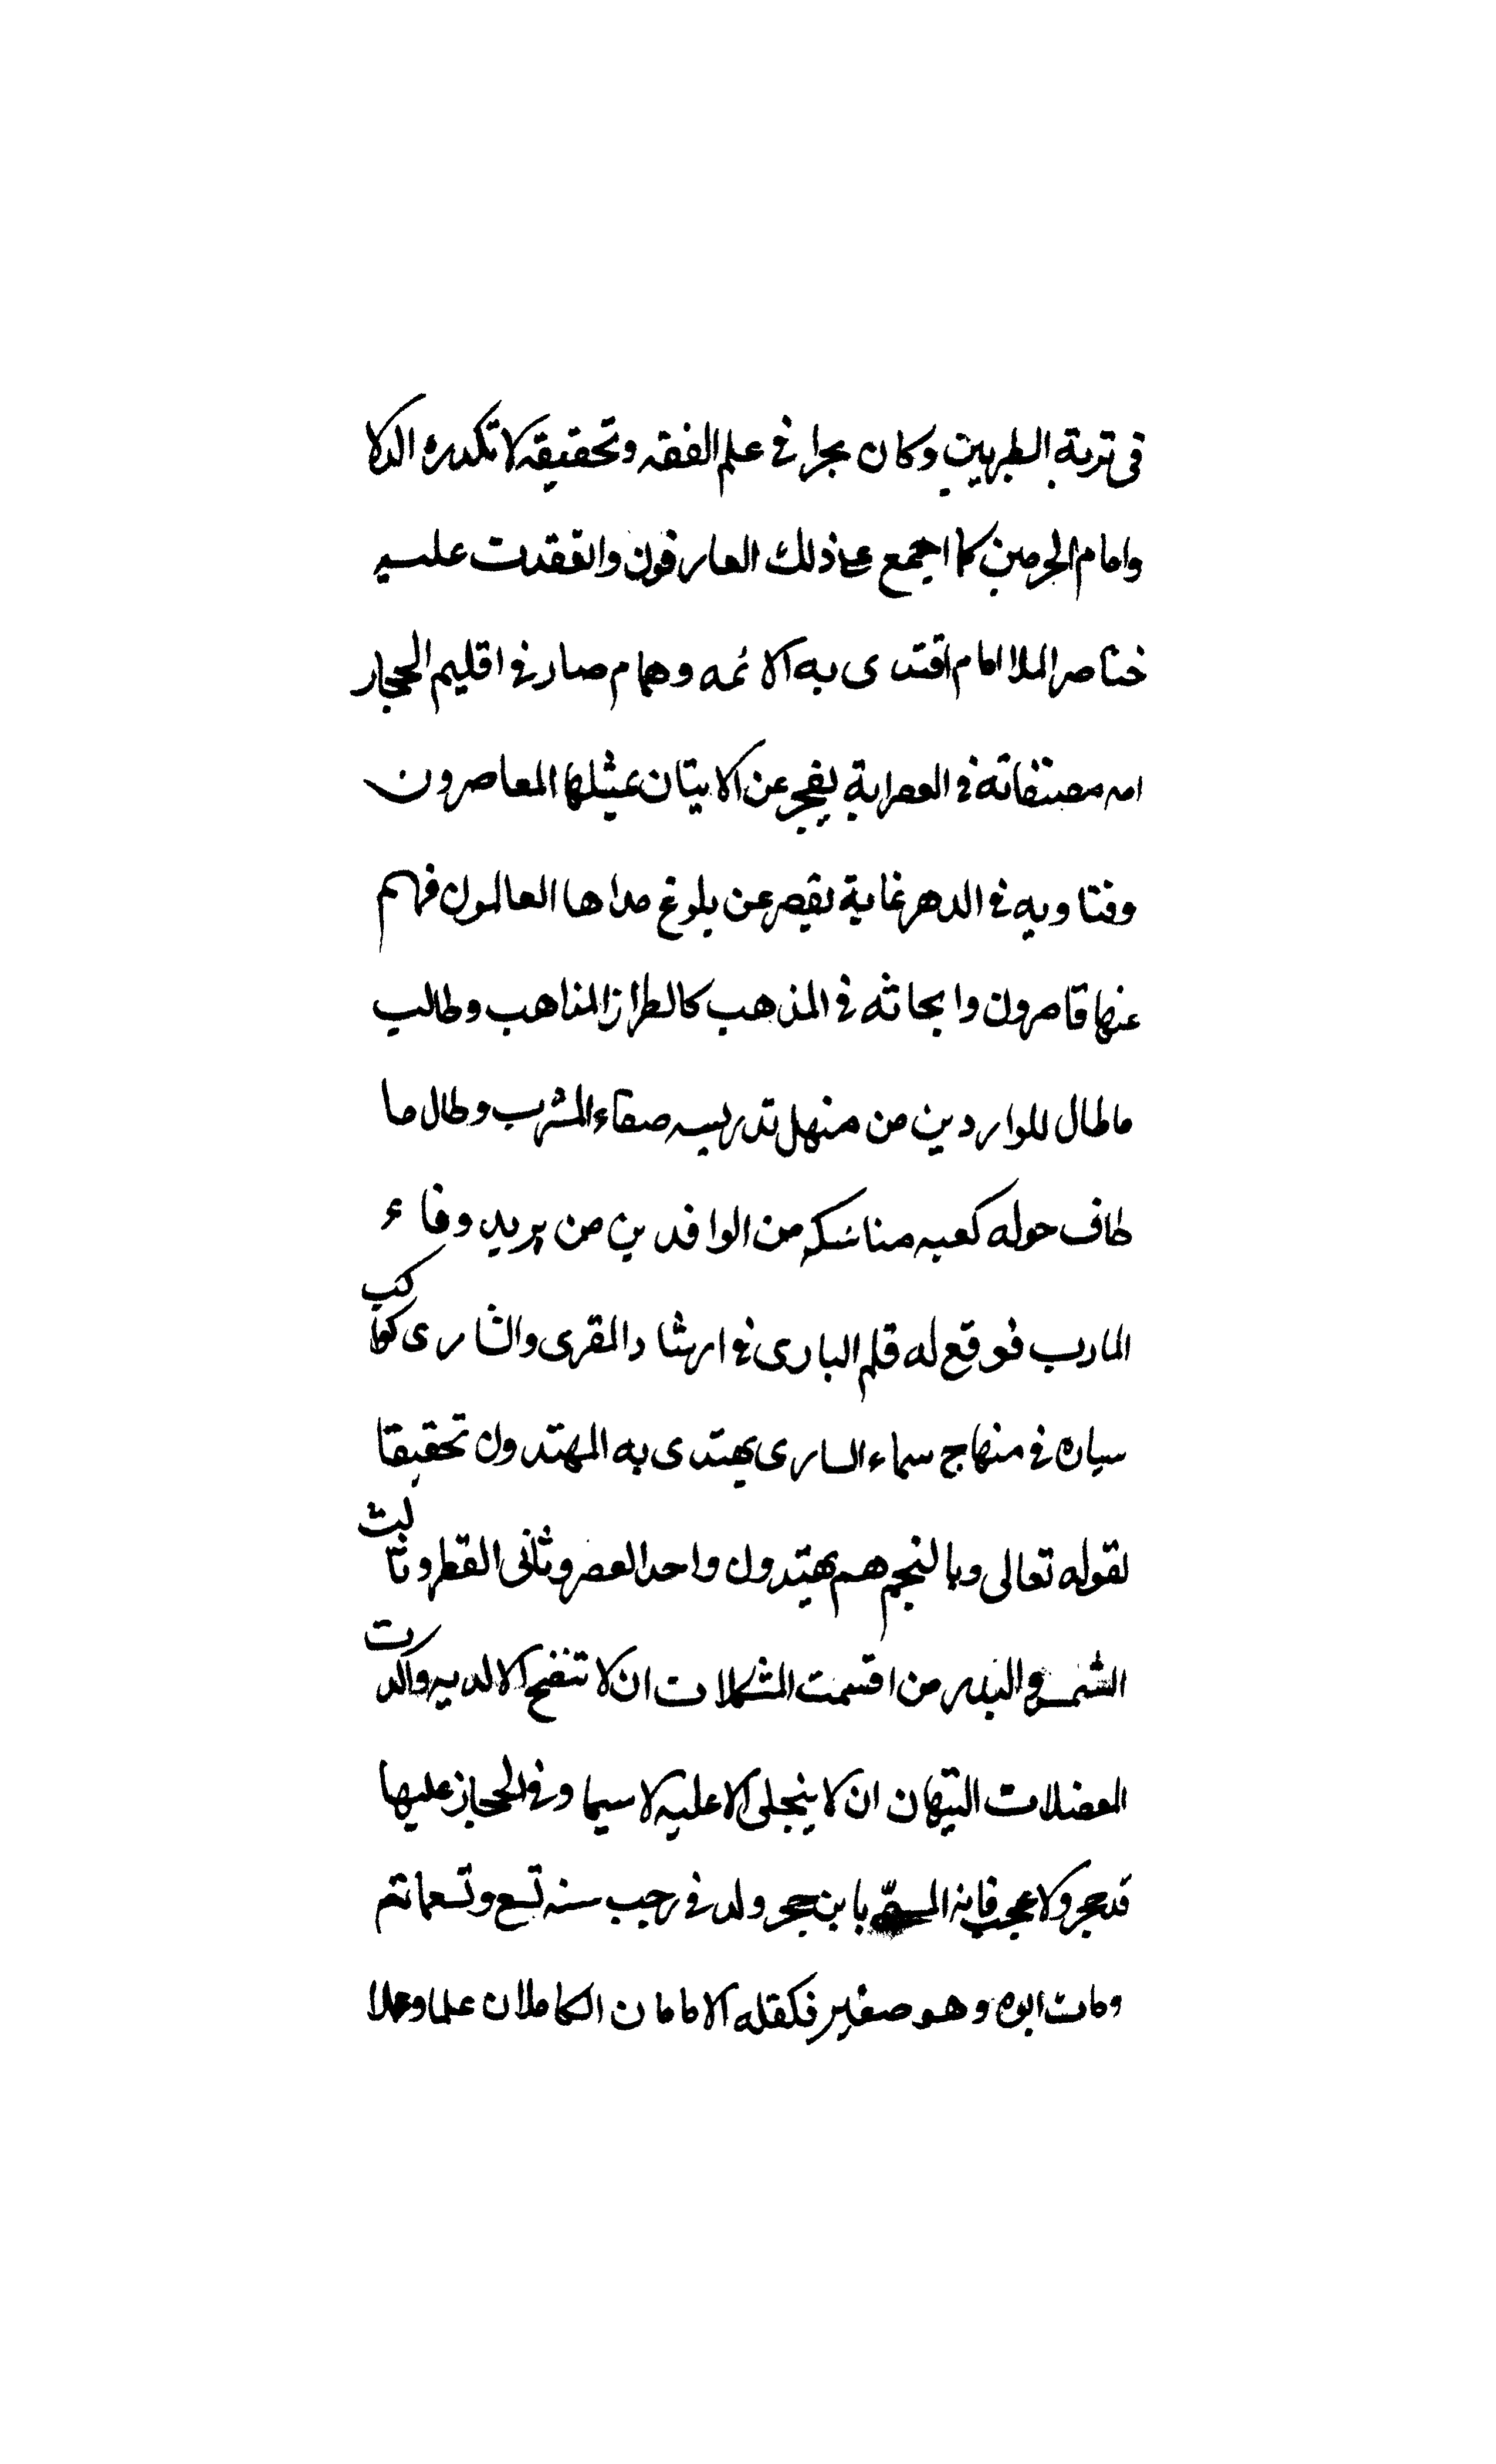 في تربة الطبريين وكان بحرا في علم الفقه وتحقيقه لا تكدره الدلا
وامام الحرمين كما اجمع على ذلك العارفون وانعقدت عليه
خناصر الملا امام اقتدى به الائمه وهمام صار في اقليم الحجاز
امه مصنفاته في العصر اية يعجز عن الاتيان بمثلها المعاصرون
وفتاويه في الدهر غاية يقصر عن بلوغ مداها العالمون فهم
عنها قاصرون وابحاثه في المذهب كالطراز المذاهب وطالب
ما طال للواردين من منهل تدريسه صفاء المشرب وطال ما
طاف حوله كعبه مناسكه من الوافدين من يريد وفاء
المارب فوقع له قلم الباري في ارشاد المقرى والشارى كواكب
سياره في منهاج سماء السارى يهتدى به المهتدون تحقيقا
لقوله تعالى وبالنجم هم يهتدون واحد العصر وثانى القطر وثالث
الشمس والبدر من اقسمت المشكلات ان لا تتضح الا لديه واكدت
المعضلات اليتهان ان لا ينجلى الا عليه لا سيما وفي الحجاز عليها
قد حجر ولا عجب فانه المسمى بابن حجر ولد في رجب سنه تسع وتسعمائه
ومات ابوه وهو صغير فكفله الامامان الكاملان علما وعملا